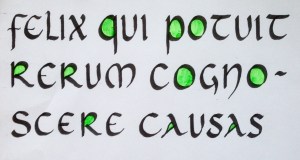 FELIX QUI POTUIT
RERUM COGNO-
SCERE CAUSAS